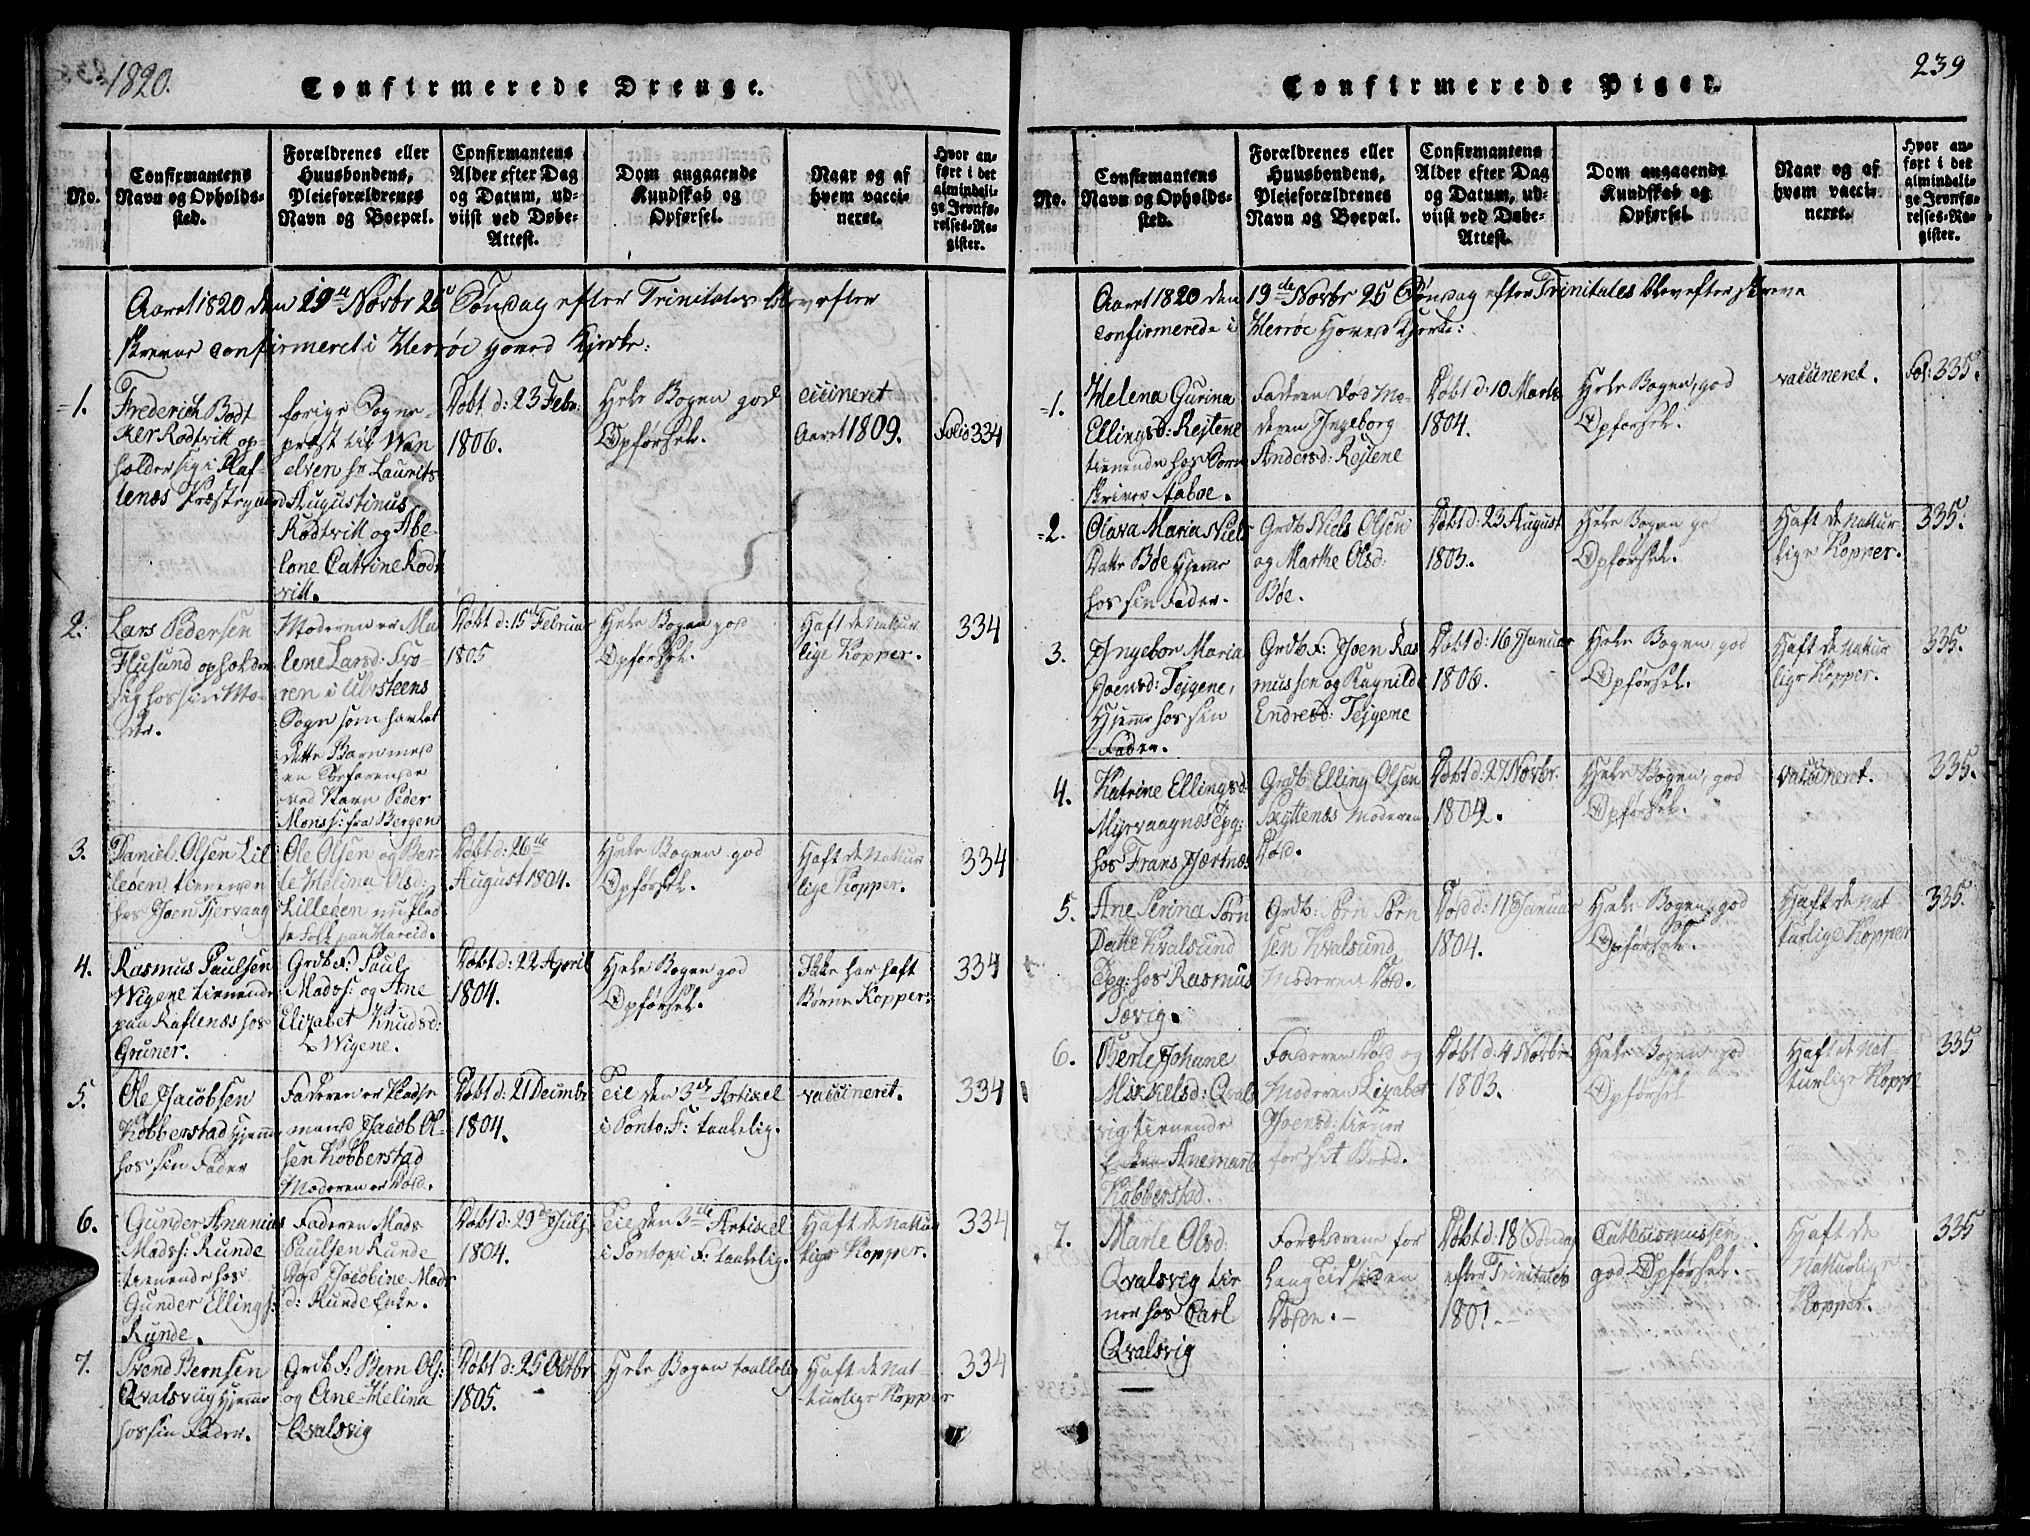 1820.
Confirmerede Drenge.
No.
Confirmantens
Navn og Opholds-
sted.
Forældrenes eller
Huusbondens,
Pleieforældrenes
Navn og Boepæl.
Confirmantens
Alder efter Dag
og Datum, ud-
viist ved Døbe-
Attest.
Dom angaaende
Kundskab og
Opførsel.
Naar og af
hvem vacci-
neret.
Hvor an-
ført i det
almindeli-
ge Jevnfø-
relses-Re-
gister.
Aaret 1820 den 19de Novbr 25de Søndag efter Trinitates blev efter
skrevne confirmeret i Herröe Hoved Kjerke:
1.
Frederich Bodt
Ker Rodtvitt op-
holder sig i Haf-
lenæs Præstegaard
forige Sogne-
præst til Wan
elven Hr Laurits
Augustinus
Rodtvitt og Abe-
lone Catrine Rodt
vitt.
Døbt d: 23 Febr:
1806.
Hele Bogen god
Opførsel.
ciccineret
Aaret 1809.
Folio 334
2.
Lars Pedersen
Flusund opholder
sig hos sin Mo-
der.
Moderen er Ma
lene Larsd:
ren i Ulvsteens
Sogn som havlet
dette Barn med
en Søefarende
ved Navn Peder
Monss: fra Bergen
Døbt d: 15de Februar
1805
Hele Bogen god
Opførsel.
Haft de Nattur
lige Kopper.
334
3.
Daniel Olsen Lil
leøen, tienende
hos Joen Tjervaag
Ole Olsen og Ber-
te Helina Olsd:
Lilleøen nu plad
se Folk paa Hareid.
Døbt d: 26de
August 1804.
Hele Bogen god
Opførsel.
Haft de Nattur
lige Kopper.
334
4.
Rasmus Paulsen
Wigene tienende
paa Haflenæs hos
Grüner.
Grdb. F: Paul
Madss: og Ane
Elizabet Knudsd:
Wigene.
Døbt d: 22 April
1804.
Hele Bogen god
Opførsel.
Ikke har haft
Børne Kopper:
334
5.
Ole Jacobsen
Kobberstad Hjemme
hos sin Fader
Faderen er Pladse
mand Jacob Ol-
sen Kobberstad
Moderen er Død.
Døbt d: 21 Decembr
1804.
Til den 3de Artixel
i Ponto: F: taalelig.
vaccineret.
334
6.
Gunder Ananias
Madss: Runde
tienende hos
Gunder Ellings:
Runde.
Faderen Mads
Paulsen Runde
Død Jacobine Mads
d: Runde Enke.
Døbt d: 29de Julj
1804.
Til den 3de Artixel
i Pontopi F: taalelig.
Haft de Nattur
lige Kopper.
334
7.
Svend Bernsen
Qvalsviig Hjemme
hos sin Fader.
Grdb F: Bern Ols:
og Ane Helina
Qvalsvig
Døbt d: 25 Octbr
1805.
Hele Bogen taallelig
Haft de Nat
turlige Kopper
334
239
Confirmerede Piger.
No.
Confirmantens
Navn og Opholds-
sted.
Forældrenes eller
Huusbondens,
Pleieforældrenes
Navn og Boepæl.
Confirmantens
Alder efter Dag
og Datum, ud-
viist ved Døbe-
Attest.
Dom angaaende
Kundskab og
Opførsel.
Naar og af
hvem vacci-
neret.
Hvor an-
ført i det
almindeli-
ge Jevnfø-
relses-Re-
gister.
Aaret 1820 den 19de Novbr 25 Søndag efter Trinitates blev efter skrevne
confirmerede i Herröe Hoved Kjerke:
1.
Helena Gurina
Ellingsd: Rejtene
tienende hos Sorn
skriver Aaboe.
Faderen Død Mo-
deren Ingeborg
Andersd: Rejtene
Døbt d: 10 Marts
1804.
Hele Bogen, god
Opførsel.
vaccineret.
Fol: 335.
2.
Olava Maria Niels
Datte Bøe Hjemme
hos sin Fader.
Grdb. Niels Olsen
og Marthe Olsd:
Bøe.
Døbt d: 23 August
1803.
Hele Bogen god
Opførsel.
Haft de Nattur
lige Kopper.
335.
3.
Ingebor Maria
Joensd: Tejgene,
Hjemme hos sin
Fader.
Grdb. F: Joen Ras
mussen og Ragnilde
Endresd: Tejgene
Døbt d: 16 Januar
1806.
Hele Bogen, god
Opførsel.
Haft de Nattur
lige Kopper.
335.
4.
Katrine Ellingsd
Myrvaagnes Opg:
hos Frans Hjertnæs
Grdb. Elling Olsen
Skyttenæs Moderen
Død.
Døbt d: 27 Novbr.
1804.
Hele Bogen, god
Opførsel.
vaccineret.
335.
5.
Ane Serina Sørn
Datte Kvalsund
Opg: hos Rasmus
Sævig.
Grdb: Sørn Sørn
sen Kvalsund
Moderen Død.
Død d: 11 Januar
1804.
Hele Bogen, god
Opførsel.
Haft de Nat
turlige Kopper
335.
6.
Berte Johane
Mikkelsd: Qvals
vig tienende
Enken Anemart
Kobberstad.
Faderen Død og
Moderen Lizabet
Joensd: tiener
for sit Brød.
Døbt d: 4 Novbr.
1803.
Hele Bogen god
Opførsel
Haft de Nat
turlige Koppe
335
7.
Marte Olsd:
Qvalsvig tie
ner hos Carl
Qvalsvig
Forældrene for
lang Tid siden
Døde.
Døbt d: 18 Søndag
efter Trinitates
1801.
Cattecismussen
god Opførsel.
Haft de
Naturlige
Kopper.
335